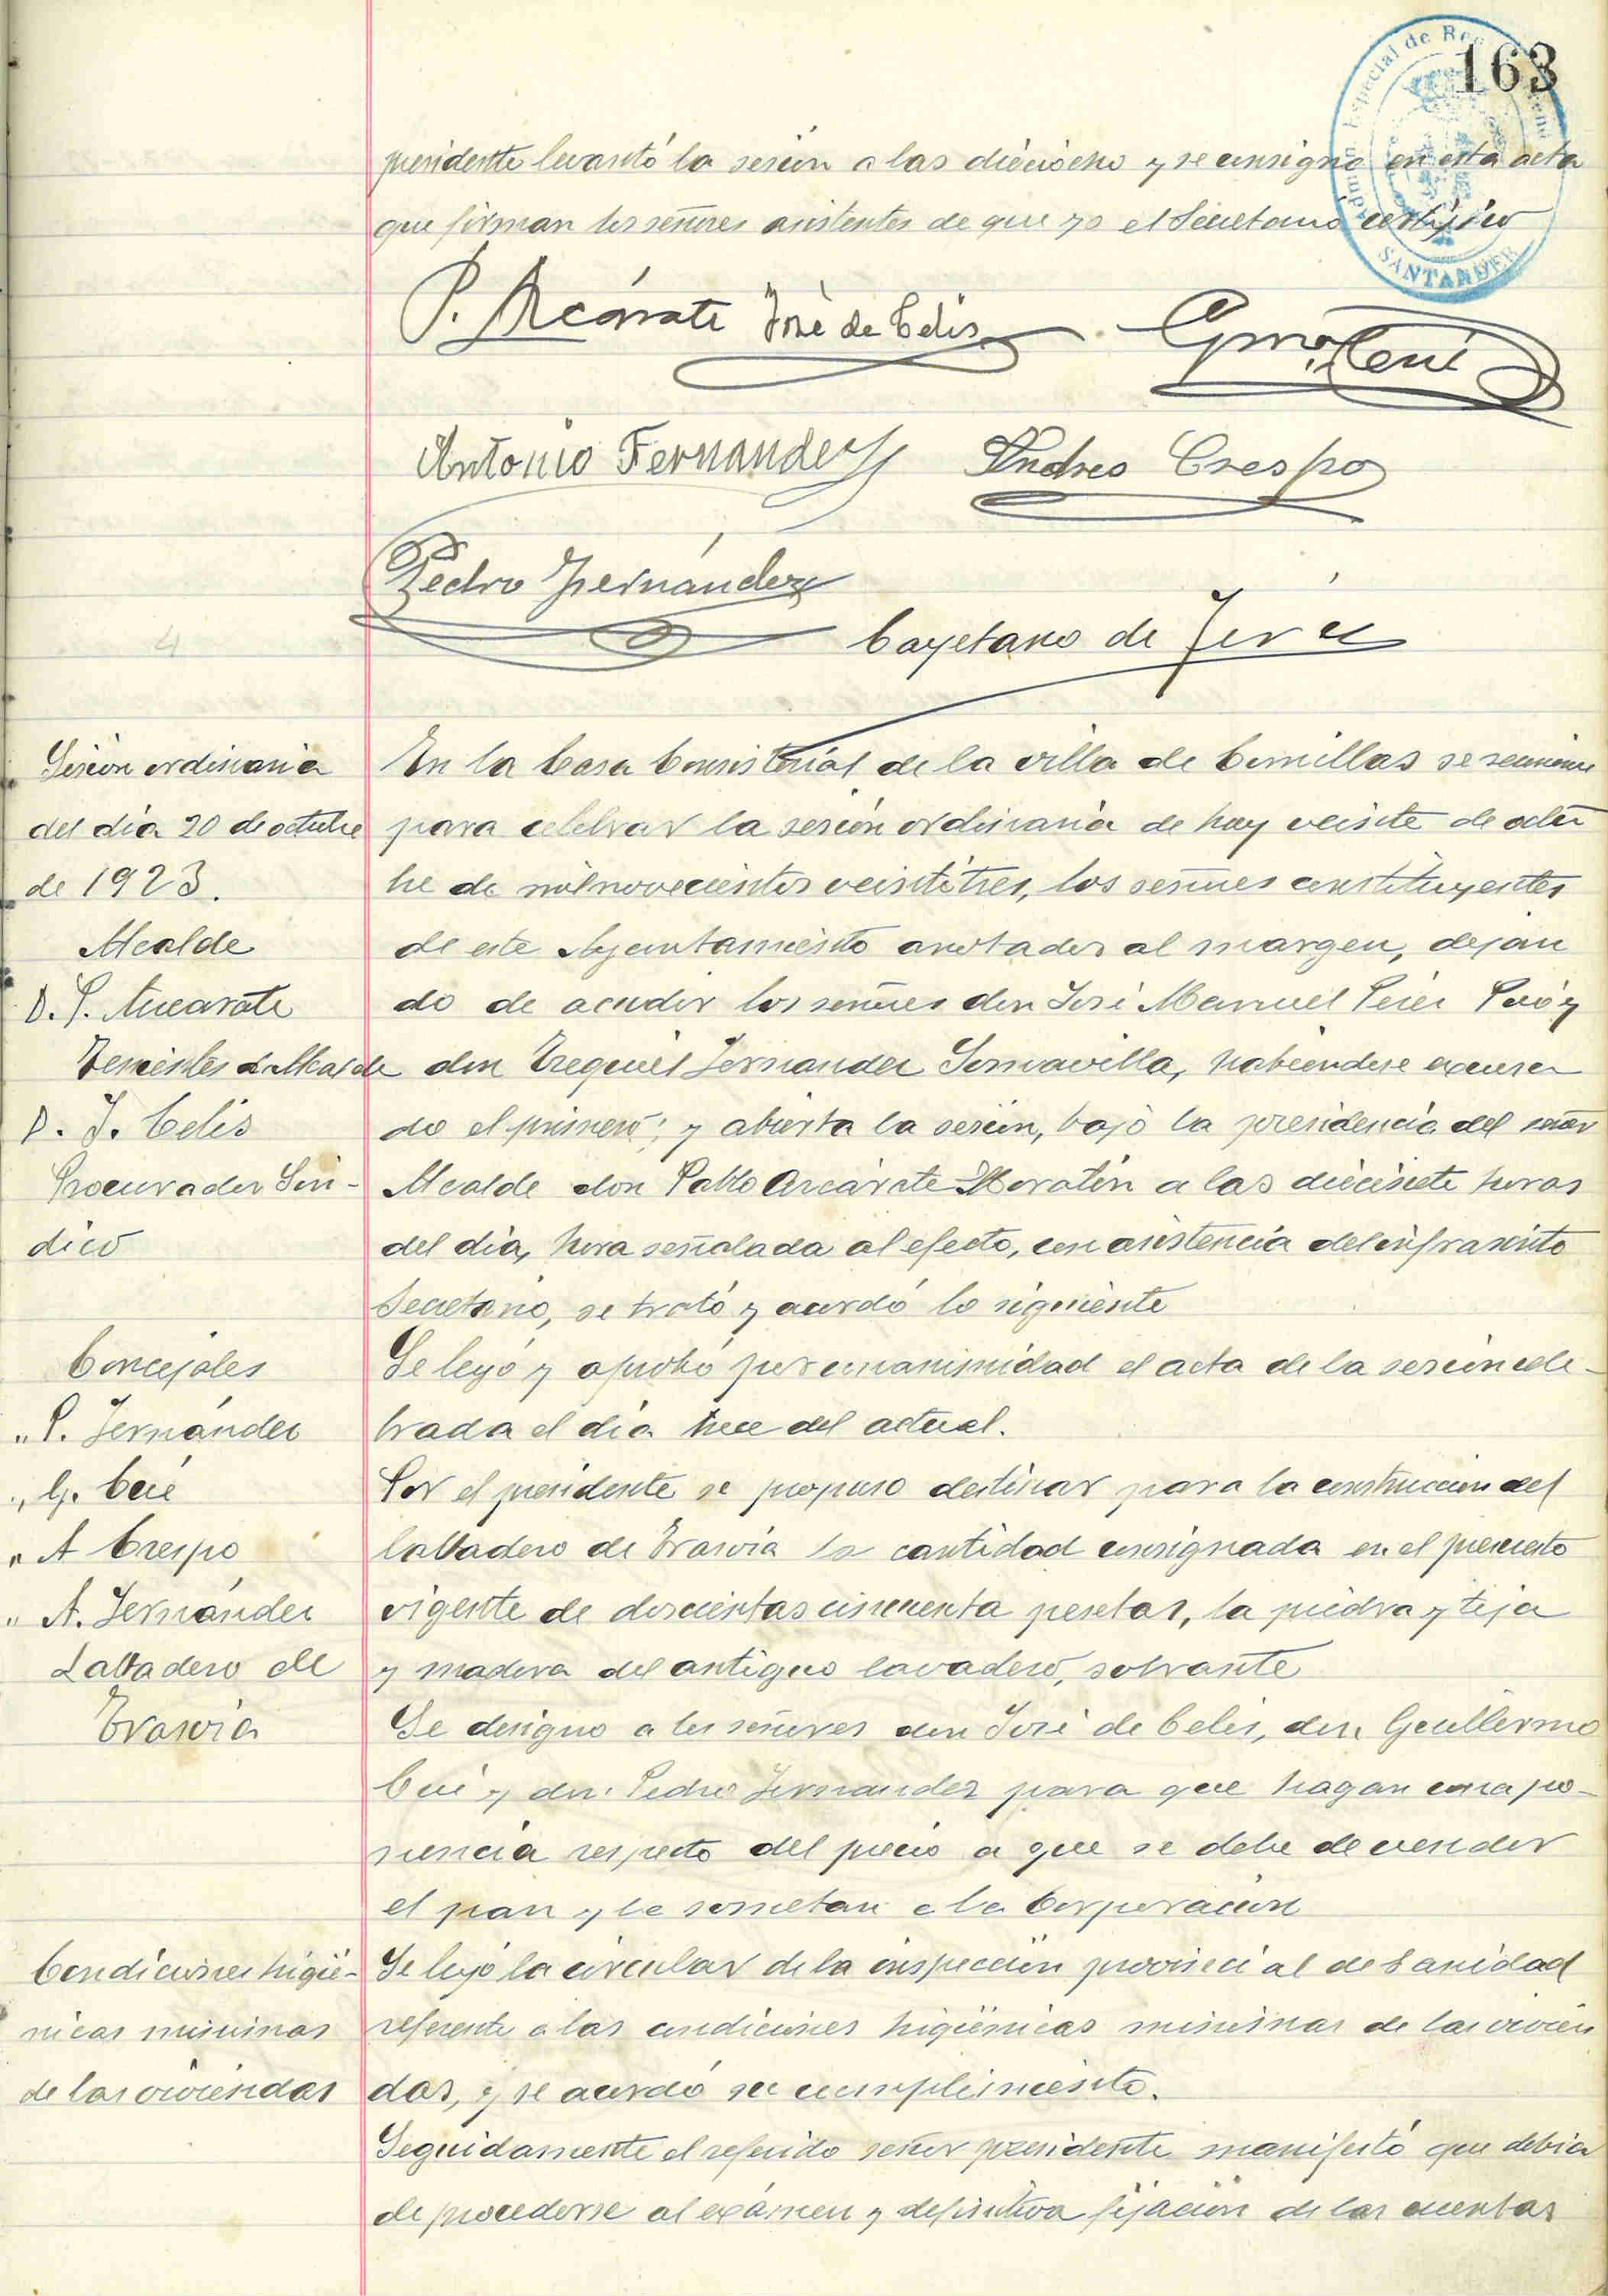 163
presidente levantó la sesión a las dieciocho y se consigna en esta acta
que firman los señores asistentes de que yo el Secretario certifico
SANTANDER
P. Arcárate José de Celis
Antonio Fernandez Andres Crespo
Pedro Fernández
Cayetano de
Sesión ordinaria
del día 20 de octubre
de 1923.
Alcalde
D. P. Arcarate
Tenientes de Alcalde
D. J. Celis
Procurador Sin-
dico
Concejales
" P. Fernández
" G. Ceié
" A Crespo
" A. Fernández
Labadero de
Trasvia
Condiciones higié-
nicas minimas
de las viviendas
En la Casa Consistorial de la villa de Comillas se reunieron
para celebrar la sesión ordinaria de hoy veinte de octu
bre de mil novecientos veintitres, los señores constituyentes
de este Ayuntamiento anotados al margen, dejan
do de acudir los señores don José Manuel Perez y
don Ezequiel Fernandez Somavilla, habiendose excusa
do el primero; y abierta la sesión, bajo la presidencia del señor
Alcalde don Pablo Arcárate Moratin a las diecisiete horas
del día, hora señalada al efecto, con asistencia del infrascrito
Secretario, se trató y acordó lo siguiente
Se leyó y aprobó por unanimidad el acta de la sesión cele-
brada el día trece del actual.
Por el presidente se propuso destinar para la construccion del
labadero de Trasvia la cantidad consignada en el presupuesto
vigente de doscientas cincuenta pesetas, la piedra y teja
y madera del antiguo lavadero, sobrante
Se designo a los señores don José de Celis, don Guillermo
y don Pedro Fernandez para que hagan una po-
nencia respecto del precio a que se debe de vender
el pan y la sometan a la Corporacion
Se leyó la circular de la inspección provincial de Sanidad
referente a las condiciones higiénicas minimas de las vivien
das, y se acordó su cumplimiento.
Seguidamente el referido señor presidente manifestó que debia
de procederse al exámen y definitiva fijación de las cuentas